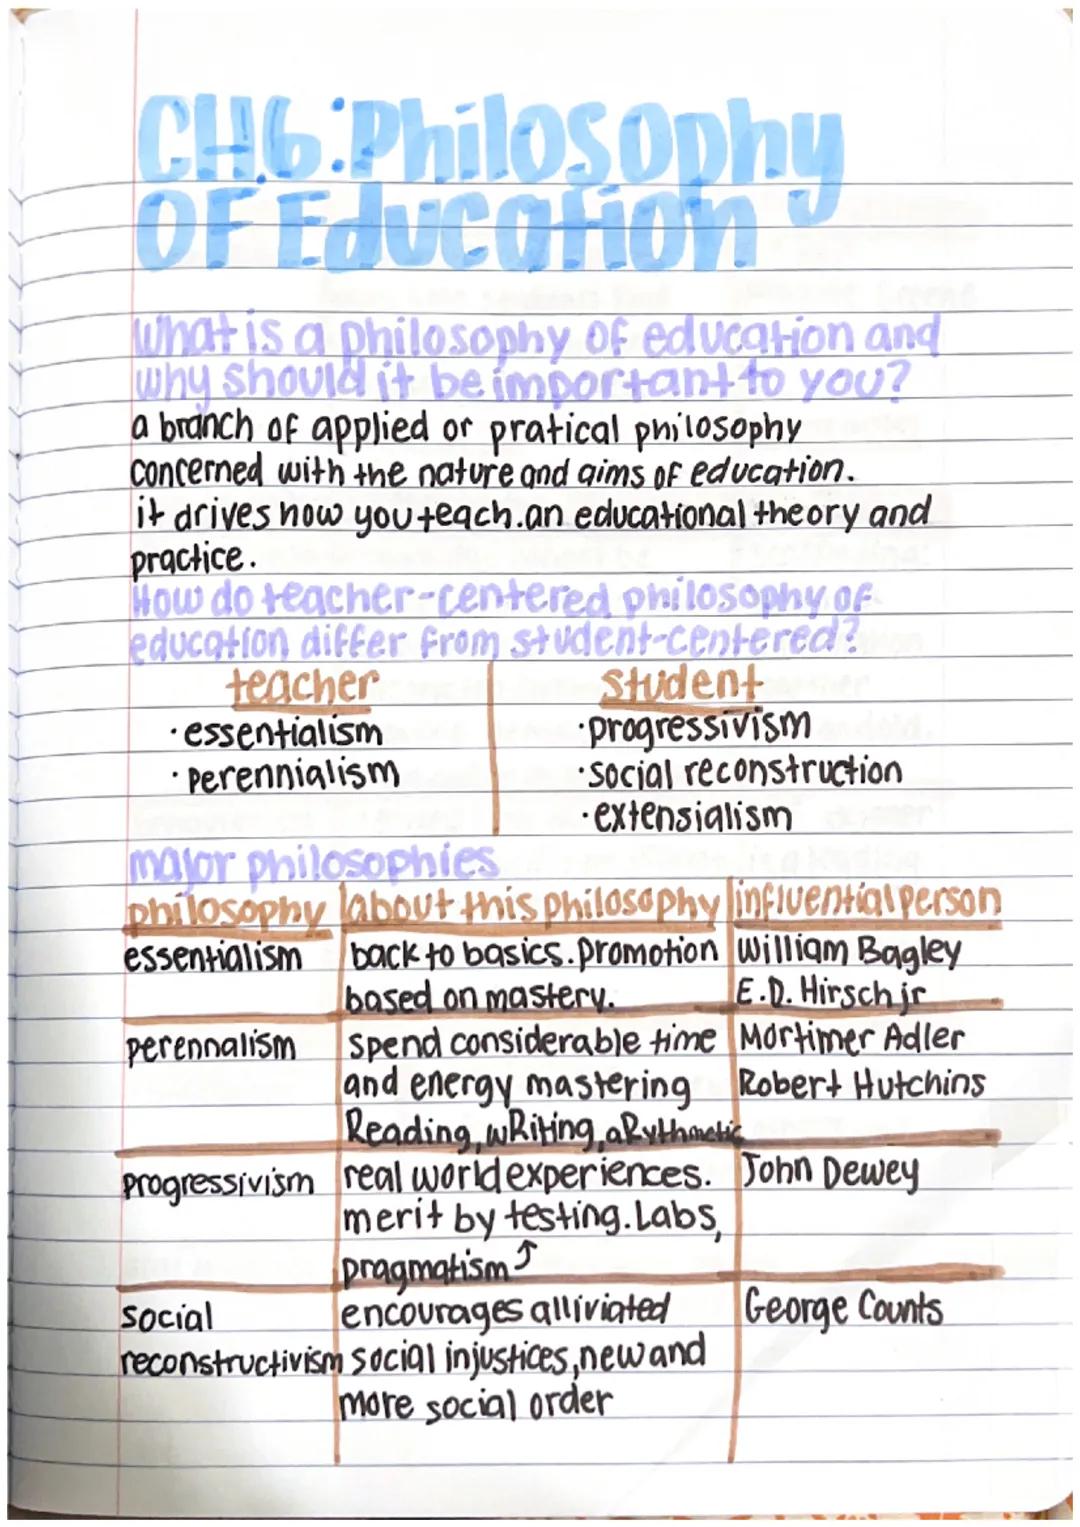 CH.6: Philosophy
OF Education
What is a philosophy of education and
why should it be important to you?
a branch of applied or pratical philosophy
concerned with the nature and aims of education.
it drives how you teach. an educational theory and
practice.
How do teacher-centered philosophy of
education differ from student-centered?
teacher student
·essentialism ·progressivism
·perennialism ·social reconstruction
·extensialism
major philosophies
philosophy about this philosophy influential person
essentialism back to basics. promotion William Bagley
based on mastery. E.D. Hirsch jr
perennalism spend considerable time Mortimer Adler
and energy mastering Robert Hutchins
Reading, wRiting, aRythmetic
progressivism real world experiences. John Dewey
merit by testing. Labs,
pragmatism ↑
social encourages alliviated George Counts
reconstructivism social injustices, new and
more social order